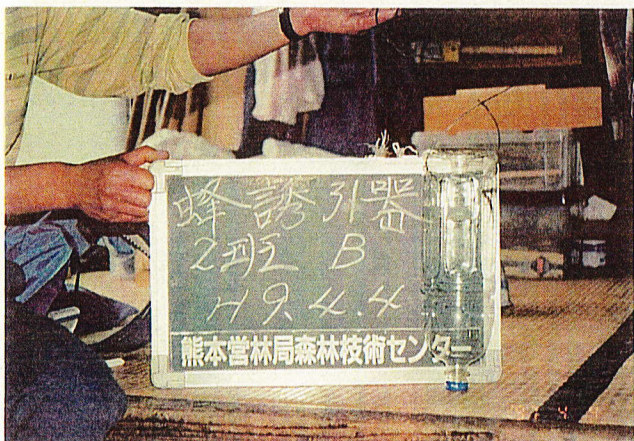 蜂誘引器
2班 B
H9.4.4
熊本営林局森林技術センター